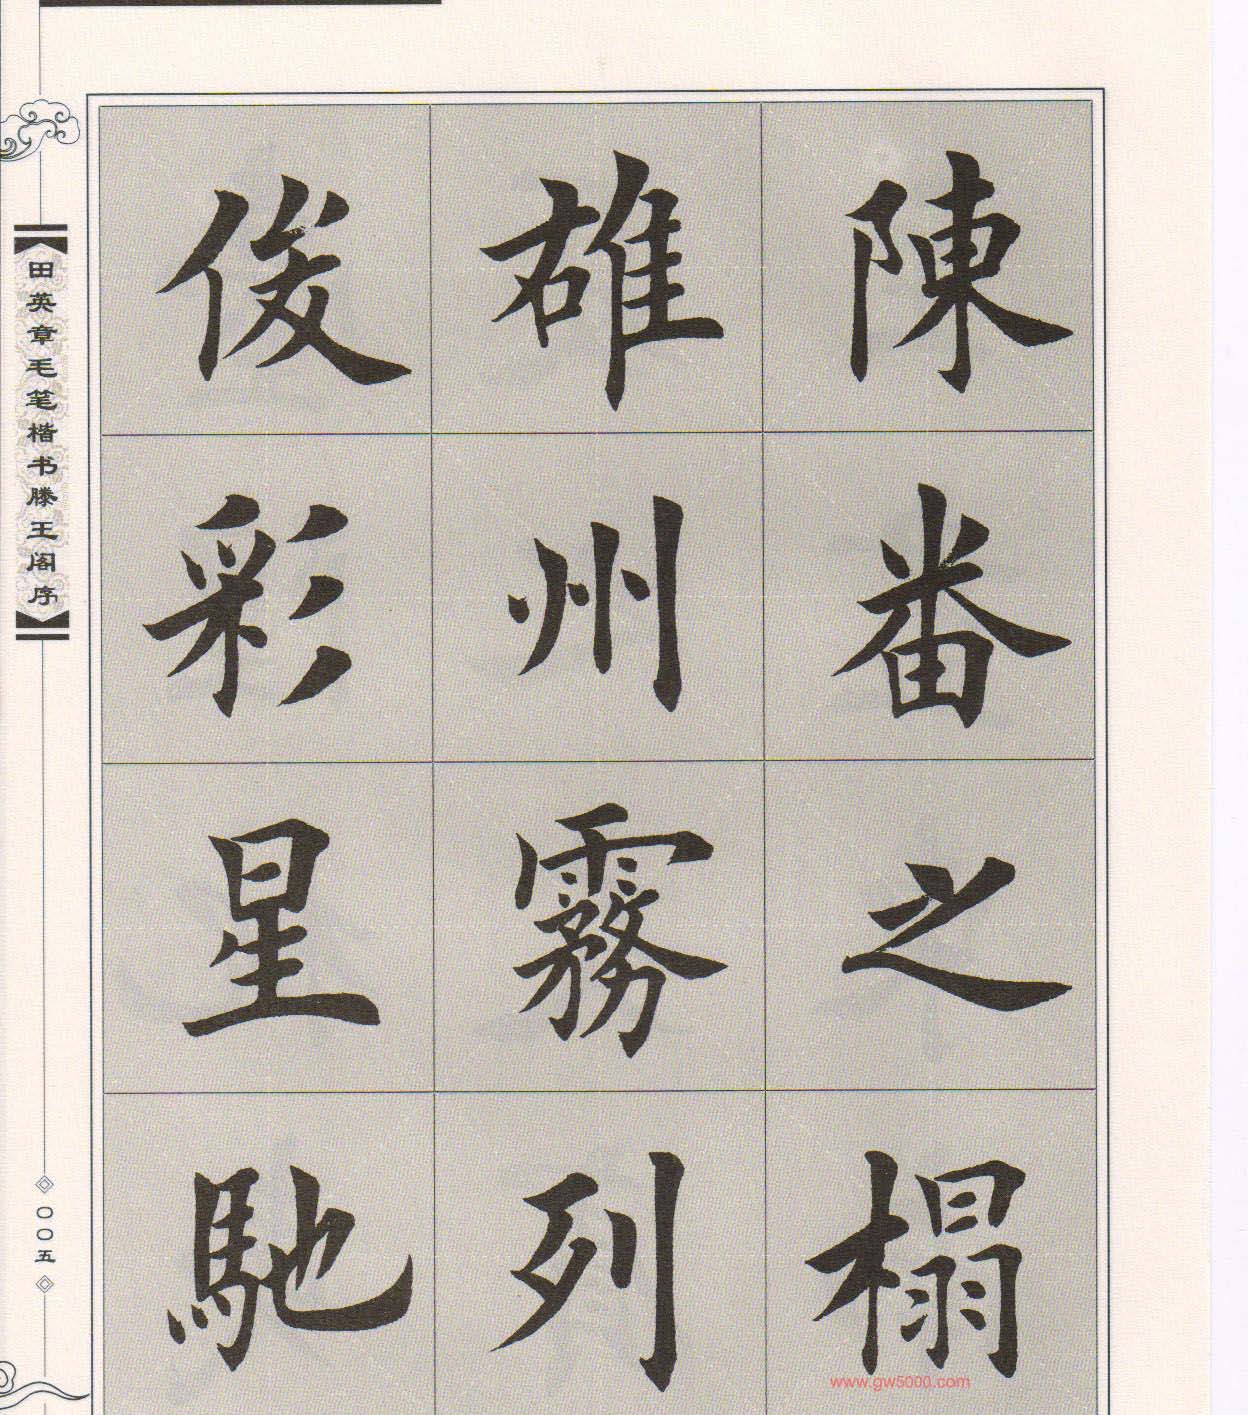 陳蕃之榻
雄州霧列
俊彩星馳
【田英章毛笔楷书滕王阁序】
〇〇五
www.gw5000.com